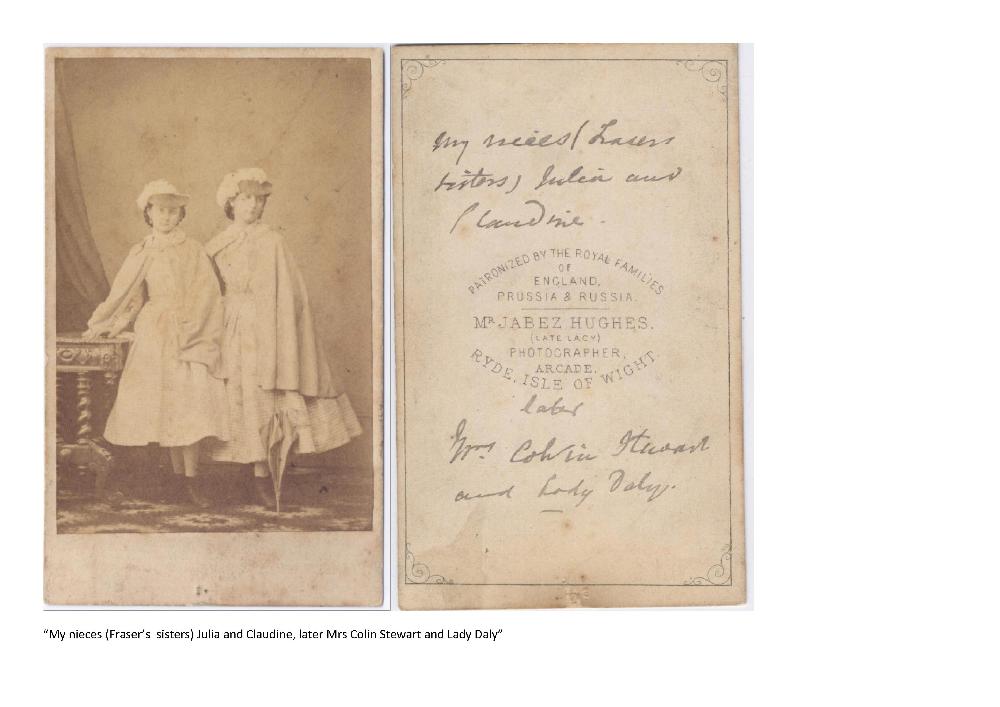 My nieces (Frasers
sisters) Julia and
Claudine.
PATRONIZED BY THE ROYAL FAMILIES
OF
ENGLAND,
PRUSSIA & RUSSIA.
MR JABEZ HUGHES.
(LATE LACY)
PHOTOGRAPHER,
ARCADE.
RYDE, ISLE OF WIGHT.
later
Mrs Colvin Stewart
and Lady Daly.
“My nieces (Fraser’s sisters) Julia and Claudine, later Mrs Colin Stewart and Lady Daly”